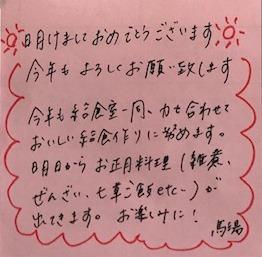 明けましておめでとうございます
今年もよろしくお願い致します
今年も給食室一同、力を合わせて
おいしい給食作りに努めます。
明日からお正月料理(雑煮、
ぜんざい、七草ご飯etc…)が
出てきます。お楽しみに!
馬場